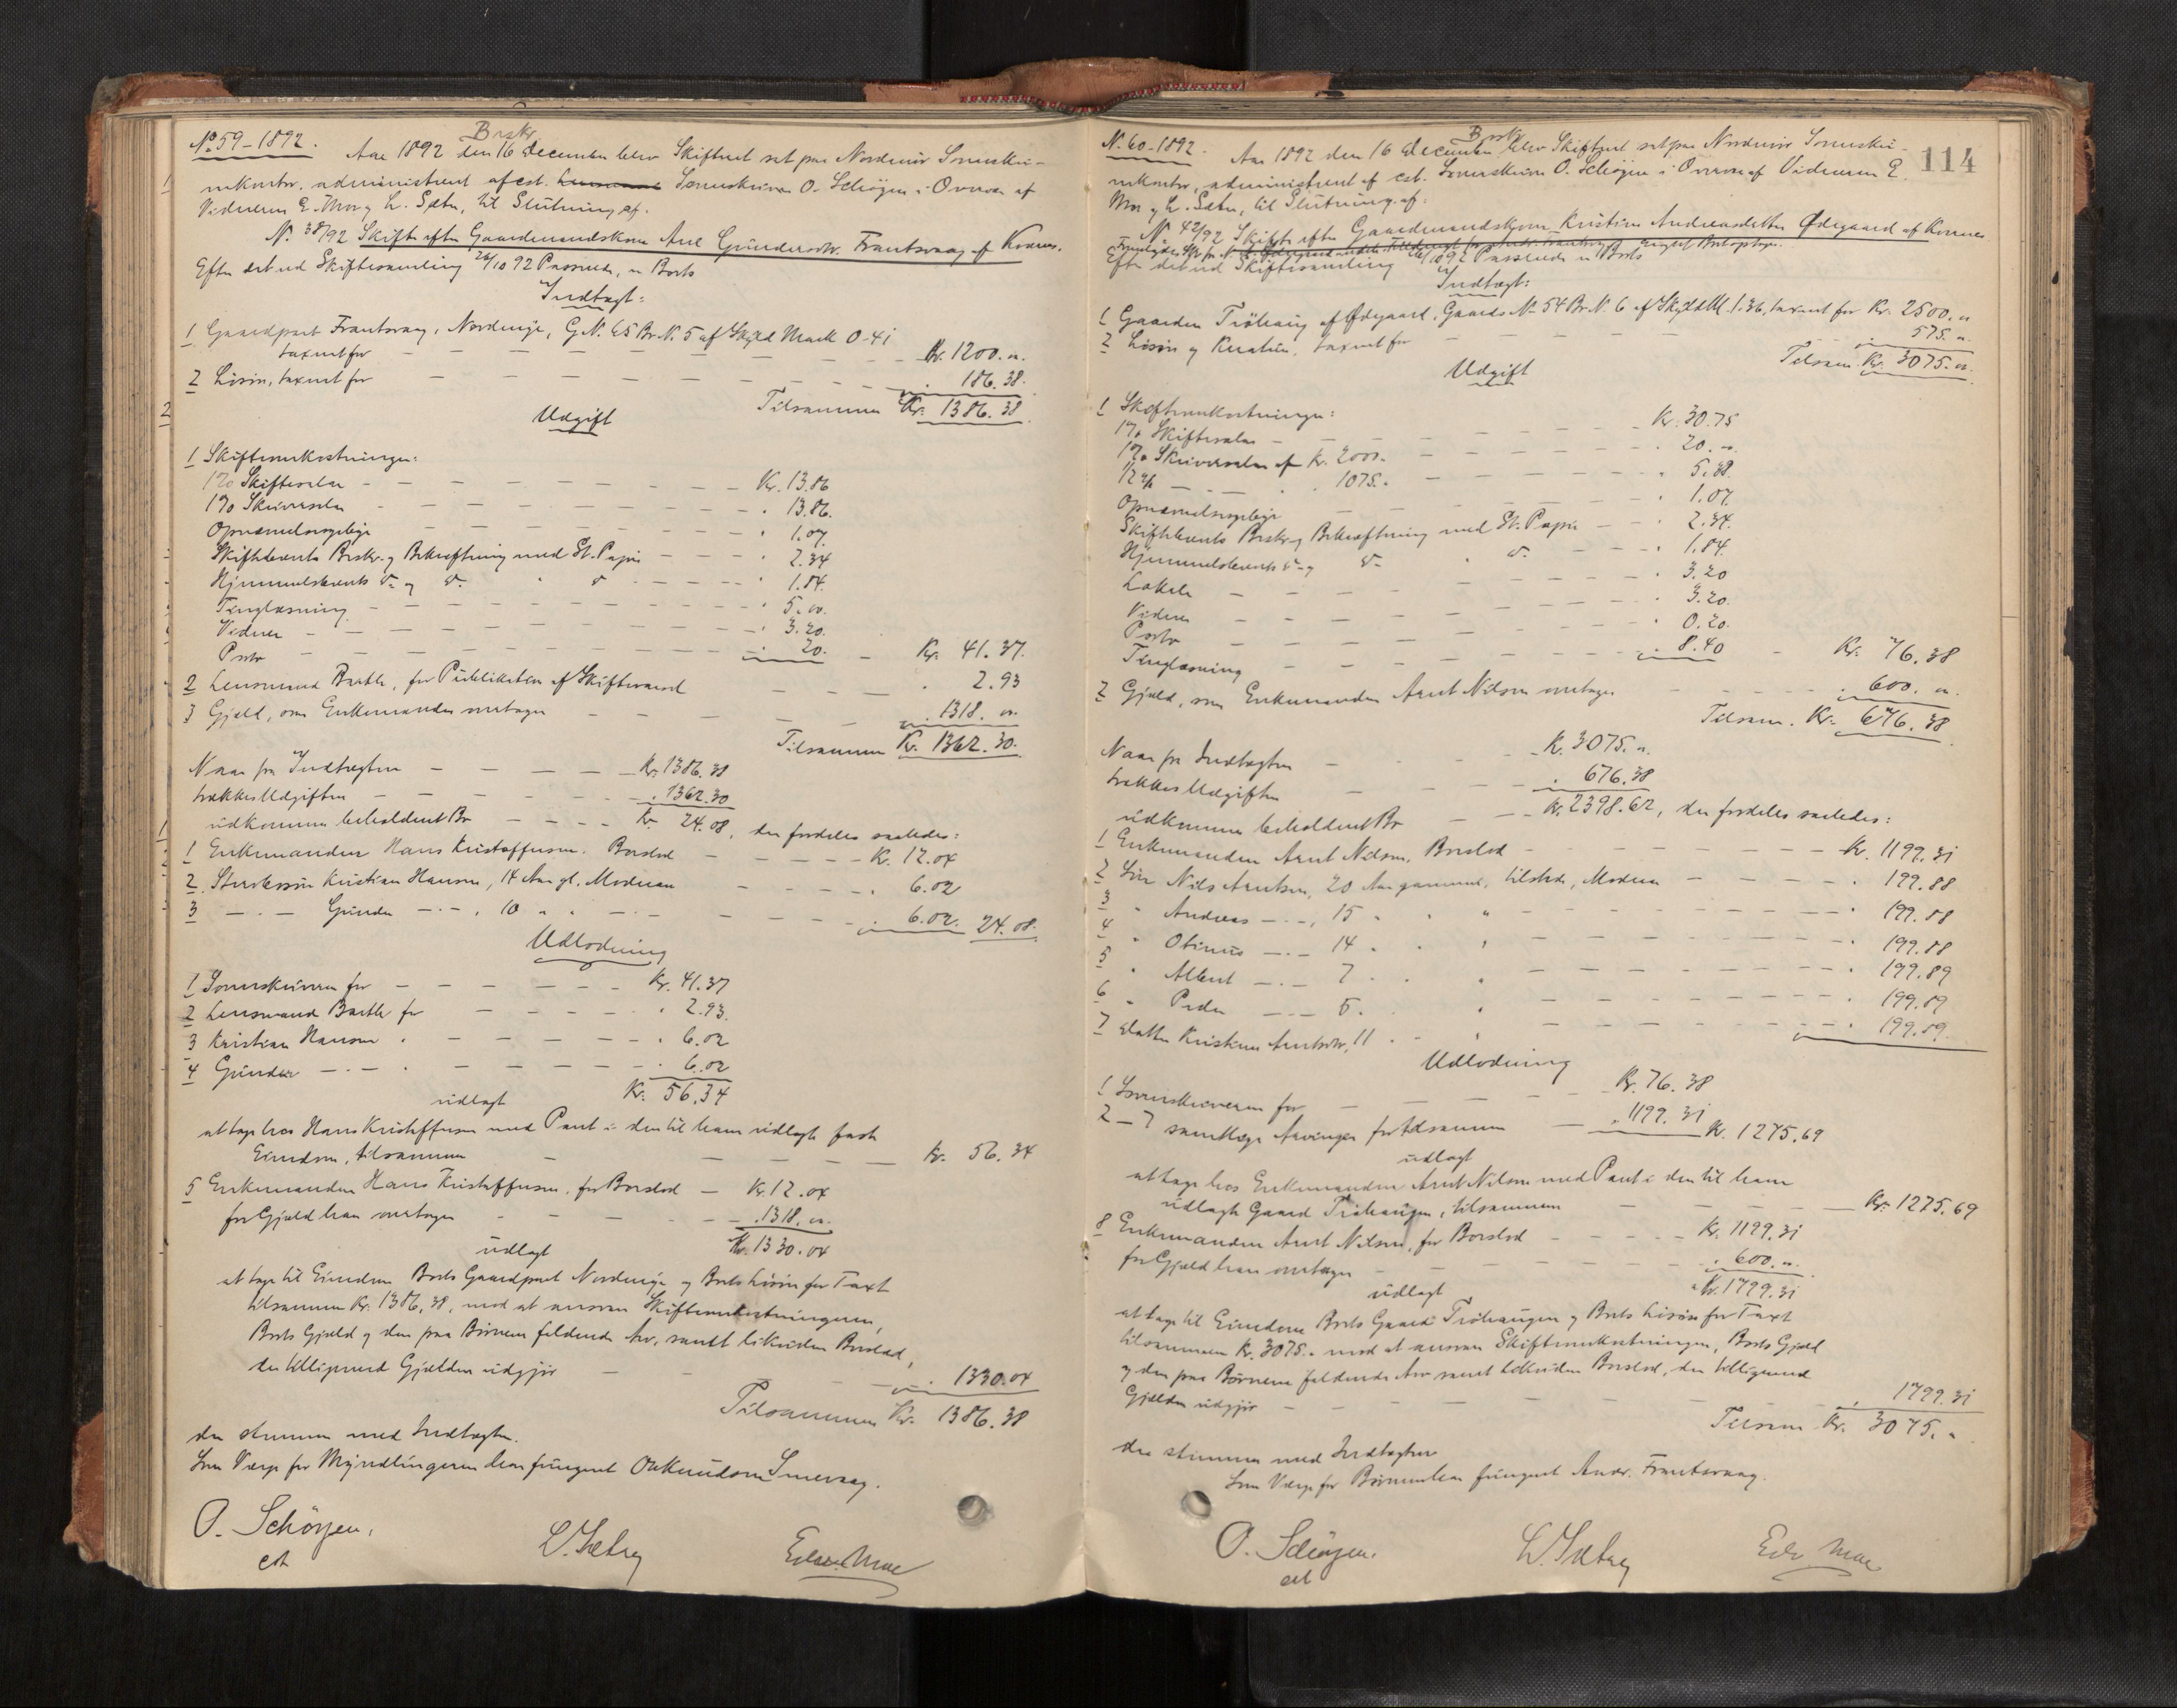 No 59-1892.
Brskr.
Aar 1892 den 16 December blev Skifteret sat paa Nordmør Sorenskri-
verkontor, administreret af cst. Sorenskriver O. Schöyen i Overvær af
Vidnerne E. Moe og L. Sæter, til Slutning af.
N. 38/92 Skifte efter Gaardmandskone Ane Gundersdtr. Frantsvaag af Kvernes.
Efter det ved Skiftesamling 26/10 92 Passerede, er Boets
Indtægt:
1 Gaardpart Frantsvaag, Nordenye, G.N. 65 Br.N. 5 af Skyld Mark 0.41
taxeret for — Kr. 1200. "
2 Løsøre, taxeret for — " 186.38.
Tilsammen Kr. 1386.38
Udgift
1 Skifteomkostninger:
1 % Skiftesalær — Kr. 13.86
1 % Skriversalær — " 13.86.
Opnævnelsesgebyr — " 1.07.
Skiftebrevets Beskr. og Bekræftning med St. Papir — " 2.34
Hjemmelsbrevets do og do " do — " 1.84.
Tinglæsning — " 5. "
Vidner — " 3.20.
Porto — " 20. — Kr. 41.37.
2 Lensmand Barth, for Publikation af Skifterared — " 2.93
3 Gjæld, som Enkemanden overtager — " 1318. "
Tilsammen Kr. 1362.30.
Naar fra Indtægten — Kr. 1386.38
trækkes Udgiften — " 1362.30
udkommer beholdent Bo — Kr. 24.08, der fordeles saaledes:
1 Enkemanden Hans Kristoffersen, Boeslod — Kr. 12.04
2. Stedsøn Kristian Hansen, 14 Aar gl. Modrearv — " 6.02
3 —"— Gunder —"—, 10 " " —"— — " 6.02. 24.08.
Udlodning
1 Sorenskriveren for — Kr. 41.37
2 Lensmand Barth for — " 2.93.
3 Kristian Hansen " — " 6.02
4 Gunder —"— " — " 6.02
Kr. 56.34
udlagt
at tage hos Hans Kristoffersen med Pant i den til ham udlagte faste
Eiendom, tilsammen — Kr. 56.34
5 Enkemanden Hans Kristoffersen, for Boeslod — Kr. 12.04
for Gjæld han overtager — " 1318. "
Kr. 1330.04
udlagt
at tage til Eiendom Boets Gaardpart Nordenye og Boets Løsøre for Taxt
tilsammen Kr. 1386,38, mod at ansvare Skifteomkostningerne,
Boets Gjæld og den paa Børnene faldende Arv, samt likvidere Boeslod,
der tilligemed Gjælden udgjør — " 1330.04
Tilsammen Kr. 1386.38
der stemmer med Indtægten.
Som Værge for Myndlingerne har fungeret O. Knudsen Smevaag.
O. Schöyen,
cst
L. Sæter
Edv. Moe
114
N. 60-1892.
Brskr
Aar 1892 den 16 December blev Skifteret sat paa Nordmør Sorenskri-
verkontor, administreret af cst. Sorenskriver O. Schöyen i Overvær af Vidnerne E.
Moe og L. Sæter, til Slutning af:
N. 42/92 Skifte efter Gaardmandskone Kristine Andreasdatter Ødegaard af Kvernes
Efter det ved Skiftesamling 26/10 92 Passerede er Boets
Indtægt:
1 Gaarden Tröhaug af Ødegaard, Gaards No 54 Br.N. 6 af Skyld M. 1.36, taxeret for Kr. 2500. "
2 Løsøre og Kreaturer, taxeret for — " 575. "
Tilsam. Kr. 3075. "
Udgift
1 Skifteomkostninger:
1 % Skiftesalær — Kr. 30.75
1 % Skriversalær af Kr. 2000. — " 20. "
1/2 % —"— " 1075. " — " 5.38.
Opnævnelsesgebyr — " 1.07.
Skiftebrevets Beskr. og Bekræftning med St. Papir — " 2.34.
Hjemmelsbrevets do og do " do — " 1.84.
Lokale — " 3.20
Vidner — " 3.20.
Porto — " 0.20.
Tinglæsning — " 8.40 — Kr. 76.38
2 Gjæld, som Enkemanden Arnt Nilsen overtager — " 600. "
Tilsam. Kr. 676.38
Naar fra Indtægten — Kr. 3075. "
trækkes Udgiften — " 676.38
udkommer beholdent Bo — Kr. 2398.62, der fordeles saaledes:
1 Enkemanden Arnt Nilsen, Boeslod — Kr. 1199.31
2 Søn Nils Arntsen, 20 Aar gammel, tilstede, Modrearv — " 199.88
3 " Andreas —"—, 15 " " " — " 199.88
4 " Otinus —"— 14 " " " — " 199.88
5 " Albert —"— 7 " " — " 199.89
6 " Peder —"— 5. " — " 199.89
7 Datter Kristine Arntsdtr, 11 " " — " 199.89.
Udlodning
1 Sorenskriveren for — Kr. 76.38
2—7 samtlige Arvinger for tilsammen — " 1199.31 Kr. 1275.69
udlagt
at tage hos Enkemanden Arnt Nilsen med Pant i den til ham
udlagte Gaard Tröhaugen, tilsammen — Kr. 1275.69
8 Enkemanden Arnt Nilsen, for Boeslod — Kr. 1199.31
for Gjæld han overtager — " 600. "
Kr. 1799.31
udlagt
at tage til Eiendom Boets Gaard Tröhaugen og Boets Løsøre for Taxt
tilsammen Kr. 3075. " mod at ansvare Skifteomkostningerne, Boets Gjæld
og den paa Børnene faldende Arv samt likvidere Boeslod, der tilligemed
Gjælden udgjør — " 1799.31
Tilsam Kr. 3075. "
der stemmer med Indtægten
Som Værge for Børnene har fungeret Andr. Frantsvaag.
O. Schöyen.
cst
L. Sæter
Edv Moe